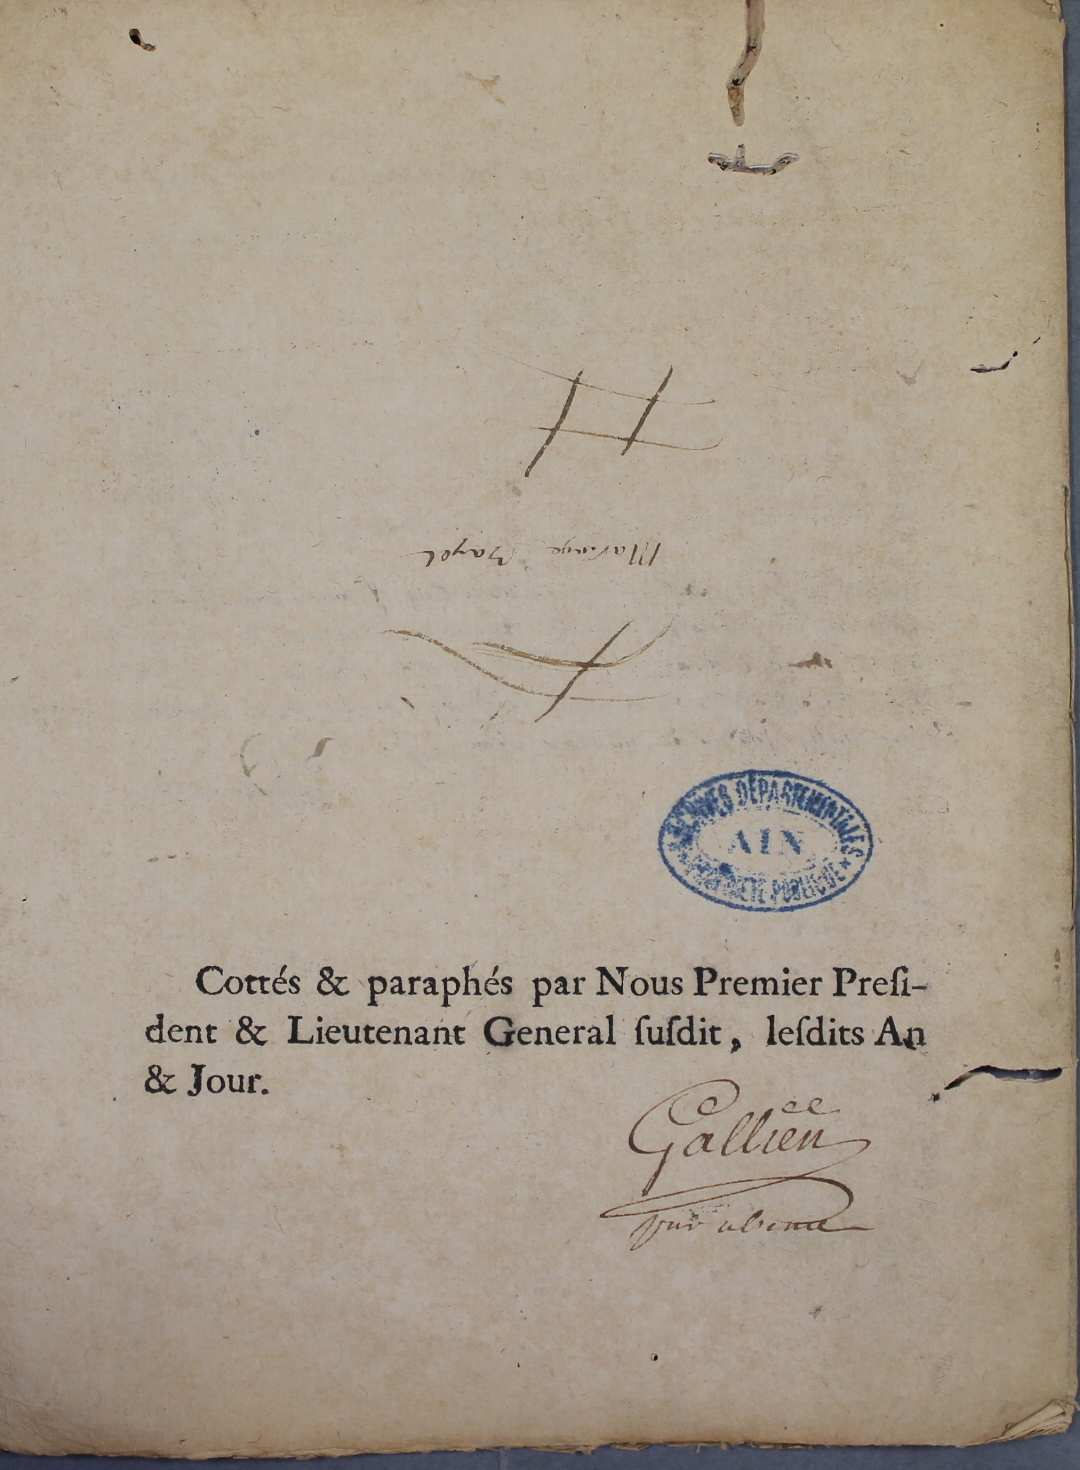 Mariage Bayet
ARCHIVES DÉPARTEMENTALES
AIN
PROPRIÉTÉ PUBLIQUE
Cottés & paraphés par Nous Premier Preſi-
dent & Lieutenant General ſuſdit, leſdits An
& Jour.
Gallien